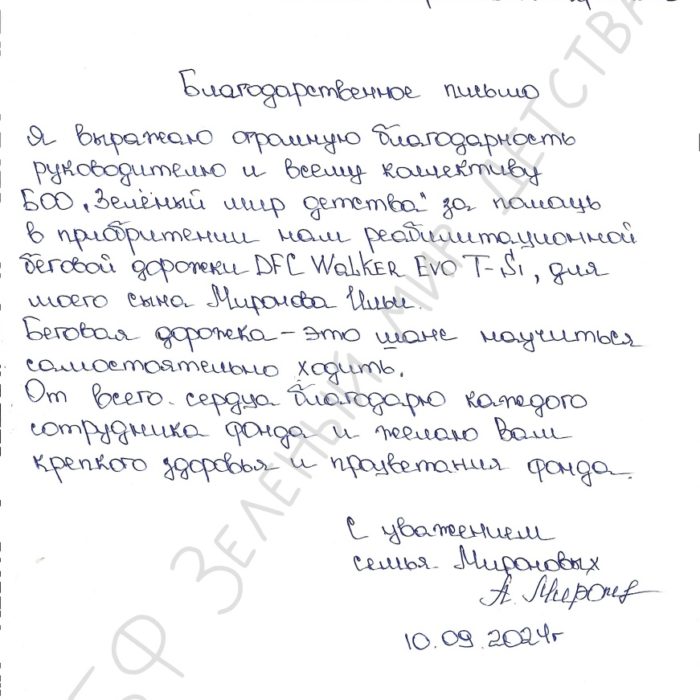 Благодарственное письмо
Я выражаю огромную благодарность
руководителю и всему коллективу
БОО „Зелёный мир детства" за помощь
в приобритении нам реабилитационной
беговой дорожки DFC WALKER EVO T-Si, для
моего сына Миронова Ильи.
Беговая дорожка – это шанс научиться
самостоятельно ходить.
От всего сердца благодарю каждого
сотрудника фонда и желаю Вам
крепкого здоровья и процветания фонда.
С уважением
семья Мироновых
А. Миронов
10.09.2024г
БФ ЗЕЛЕНЫЙ МИР ДЕТСТВА